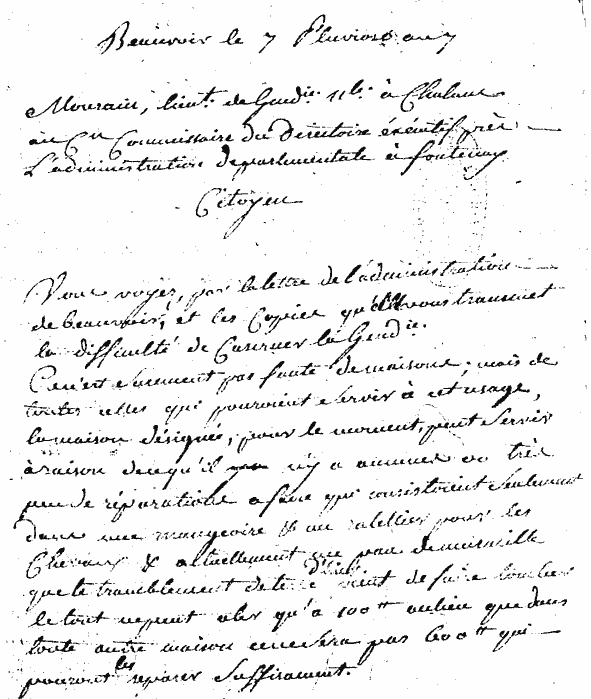 Beauvoir le 7 Pluviose an 7
Mourain, lieut. de Gendie. nle. à Chalans
au Cen Commissaire du Directoire éxécutif près
L'administration departementale à fontenay
Citoyen
Vous voyez, par la lettre de l'administration
de beauvoir, et les Copies qu'elle vous transmet
la difficulté de Caserner la Gendie.
Ce n'est surement pas faute de maisons; mais de
toutes celles qui pourroient servir à cet usage,
la maison désignée, pour le moment, peut servir
à raison de ce qu'il n'y a aucunes ou très
peu de réparations a faire qui consistroient seulement
dans une mangeoire & un ratellier pour les
Chevaux & actuellement que pan de muraille
que le tremblement de te vient de faire tomber
le tout ne peut aler qu'a 100tt au lieu que dans
toute autre maison ce ne sera pas 600tt qui
pouront les reparer suffisament.